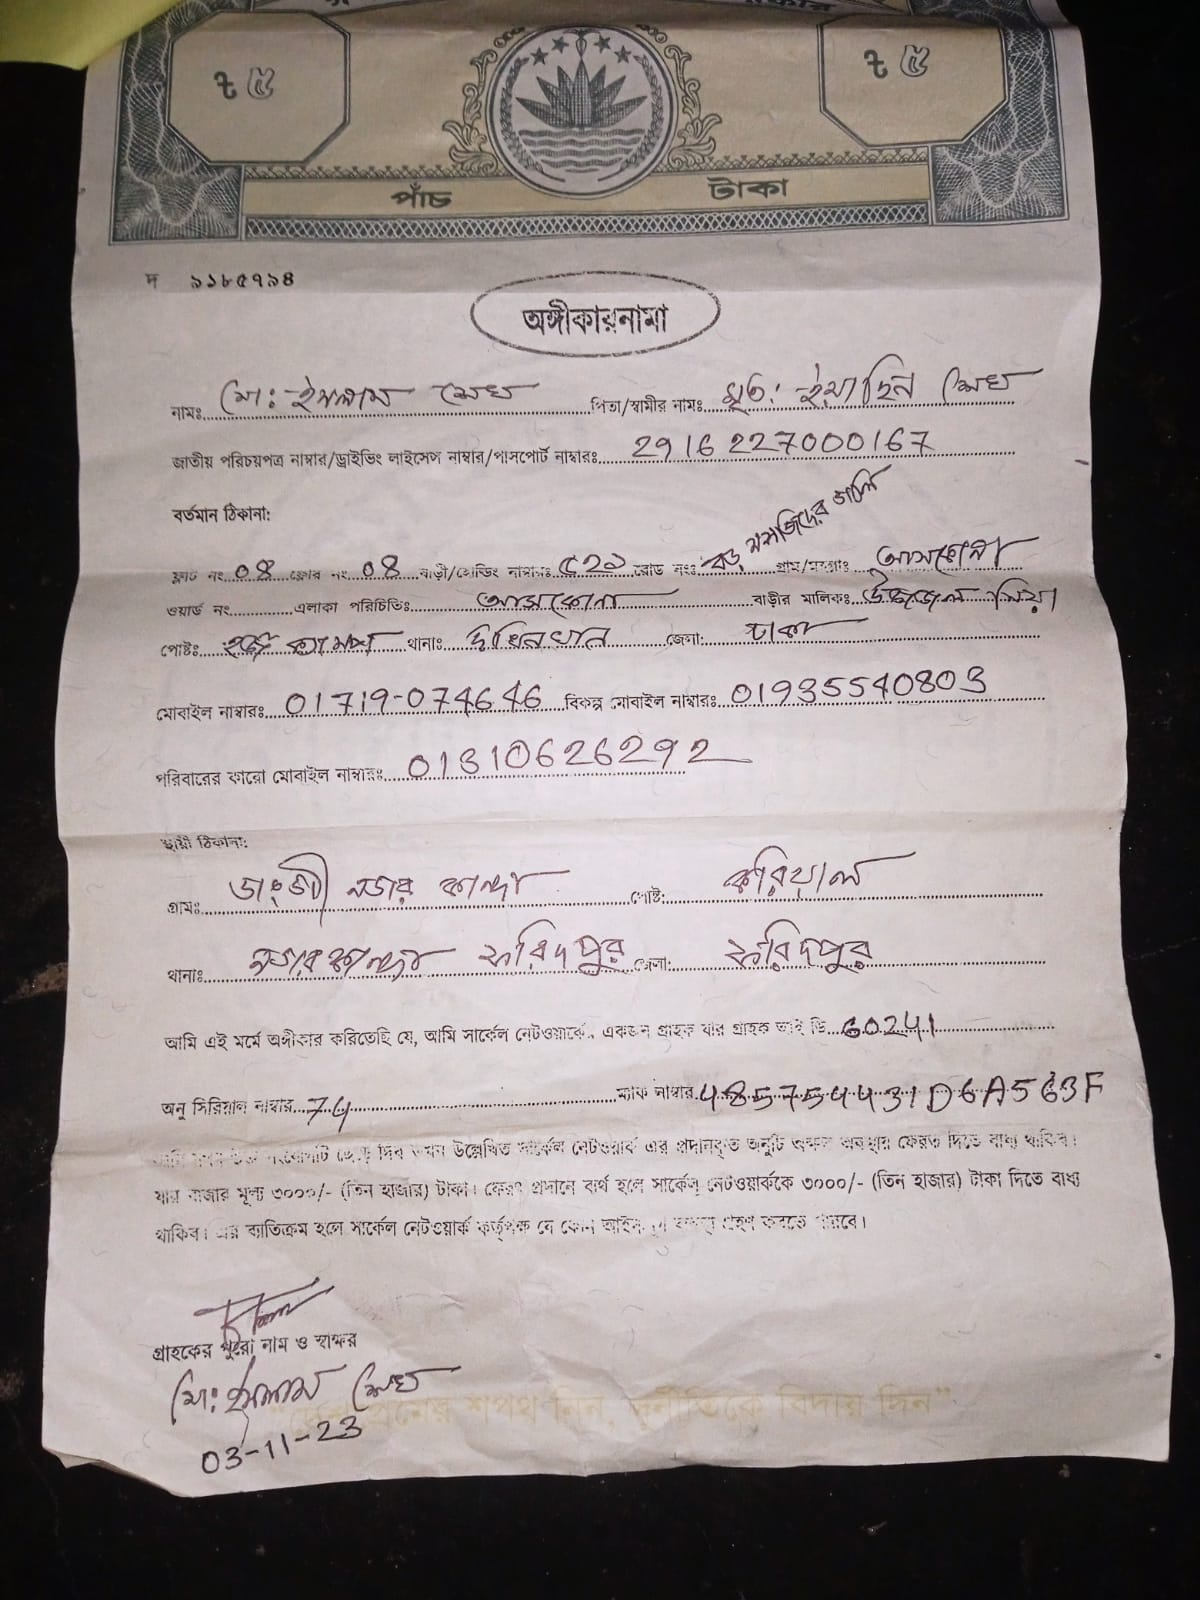 ৳ ৫
৳ ৫
পাঁচ টাকা
দ ৯১৮৫৭৯৪
অঙ্গীকারনামা
নামঃ মো: ইসলাম শেখ পিতা/স্বামীর নামঃ মৃত: ইয়াছিন শেখ
জাতীয় পরিচয়পত্র নাম্বার/ড্রাইভিং লাইসেন্স নাম্বার/পাসপোর্ট নাম্বারঃ 2916227000167
বর্তমান ঠিকানা:
ফ্লাট নং 04 ফ্লোর নং 04 বাড়ী/হোল্ডিং নাম্বারঃ ৫২১ রোড নংঃ বড় মসজিদের গলি গ্রাম/মহল্লাঃ আসকোনা
ওয়ার্ড নং এলাকা পরিচিতিঃ আসকোনা বাড়ীর মালিকঃ উজ্জল মিয়া
পোষ্টঃ হজ্জ ক্যাম্প থানাঃ দক্ষিনখান জেলা: ঢাকা
মোবাইল নাম্বারঃ 01719-074646 বিকল্প মোবাইল নাম্বারঃ 01935540803
পরিবারের কারো মোবাইল নাম্বারঃ 01310626292
স্থায়ী ঠিকানা:
গ্রামঃ নগর কান্দা পোষ্ট:
থানাঃ নগরকান্দা ফরিদপুর জেলা: ফরিদপুর
আমি এই মর্মে অঙ্গীকার করিতেছি যে, আমি সার্কেল নেটওয়ার্কের একজন গ্রাহক যার গ্রাহক আই ডি 60241
অনু সিরিয়াল নাম্বার 74 ম্যাক নাম্বার 485754431D6A563F
দিব তখন উল্লেখিত সার্কেল নেটওয়ার্ক এর প্রদানকৃত অনুটি অক্ষত অবস্থায় ফেরত দিতে বাধ্য থাকিব।
যার বাজার মূল্য ৩০০০/- (তিন হাজার) টাকা। ফেরৎ প্রদানে ব্যর্থ হলে সার্কেল নেটওয়ার্ককে ৩০০০/- (তিন হাজার) টাকা দিতে বাধ্য
থাকিব। এর ব্যতিক্রম হলে সার্কেল নেটওয়ার্ক কর্তৃপক্ষ যে কোন গ্রহণ করতে পারবে।
গ্রাহকের পুরো নাম ও স্বাক্ষর
মো: ইসলাম শেখ
03-11-23
শপথ নিন, দুর্নীতিকে বিদায় দিন"